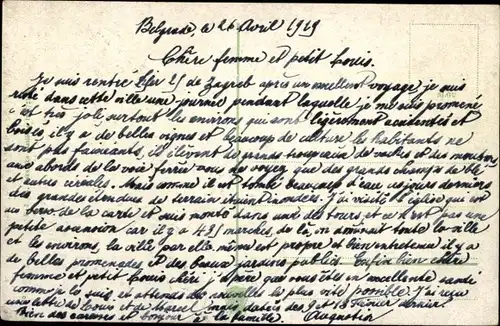 Belgrade le 26 Avril 1919
Chère femme et petit Louis.
Je suis rentré hier 25 de Zagreb après un excellent voyage, je suis
resté dans cette ville une journée pendant laquelle je me suis promené
c'est très joli surtout les environs qui sont légèrement accidentés et
boisés il y a de belles vignes et beaucoup de culture les habitants ne
sont pas faineants, ils élèvent de grands troupeaux de vaches et des moutons
aux abords de la voie ferrée vous ne voyez que des grands champs de blé
et autres céréales. Mais comme il est tombé beaucoup d'eau ces jours derniers
des grandes étendues de terrain étaient inondées. J'ai visité l'église qui est
au verso de la carte et suis monté dans une des tours, et ce n'est pas une
petite ascension car il y a 431 marches, de là, on dominait toute la ville
et les environs, la ville par elle même est propre et bien entretenue il y a
de belles promenades et des beaux jardins publics. Enfin bien chère
femme et petit Louis chéri j'espère que vous êtes en excellente santé
comme je le suis, et attends des nouvelles le plus vite possible. J'ai reçu
une lettre de et de Marcel mais datées des 9 et 18 dernier.
Bien des caresses et bonjour à la famille. Augustin